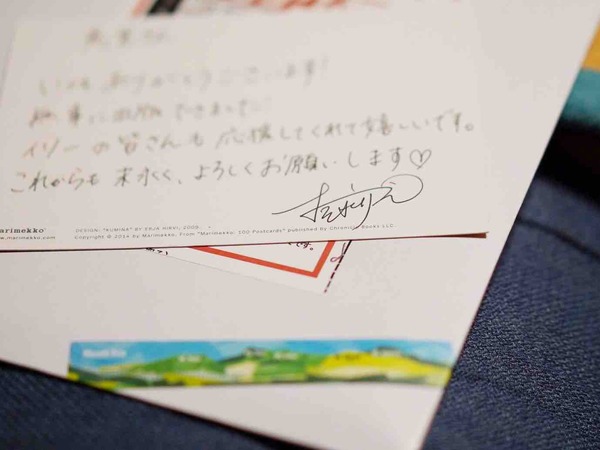 いつもありがとうございます!
無事に出版できました!
イリーの皆さんも 応援してくれて嬉しいです。
これからも 末永く、よろしくお願いします♡
marimekko
www.marimekko.com
DESIGN: "KUMINA" BY ERJA HIRVI, 2009
Copyright © 2014 by Marimekko. From "Marimekko: 100 Postcards" published by Chronicle Books LLC
です。